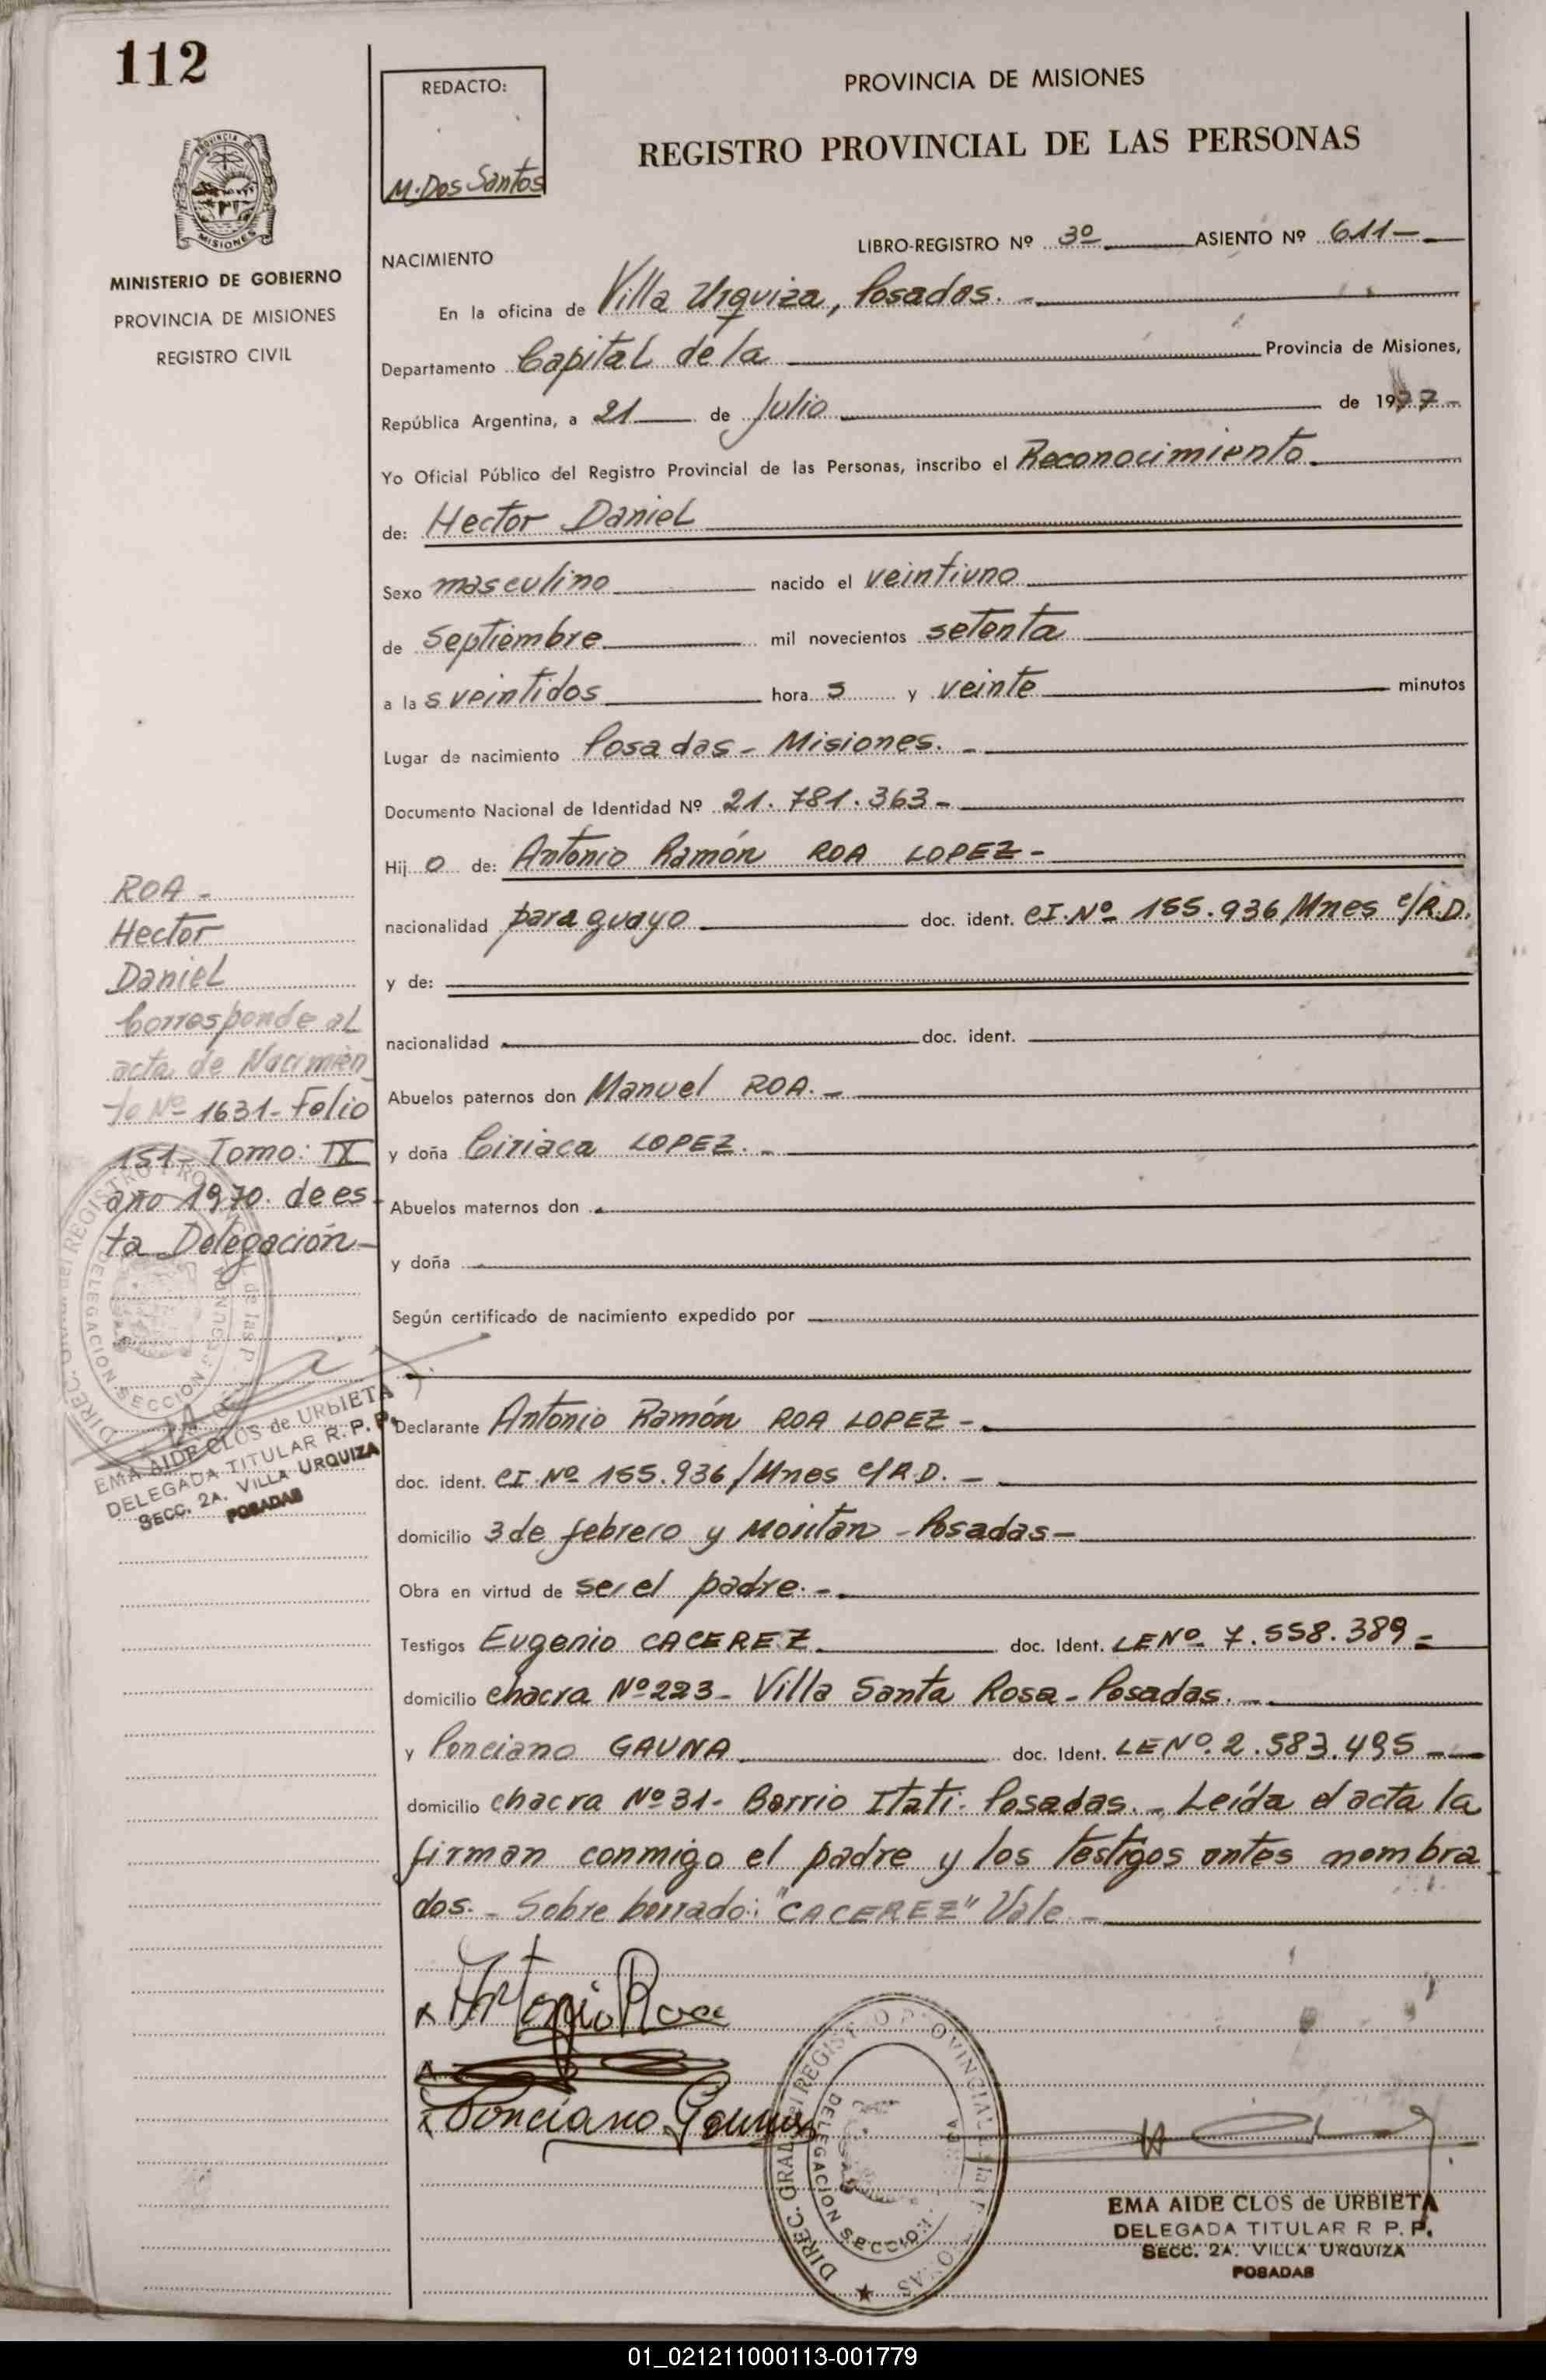 112
REDACTO:
M. Dos Santos
PROVINCIA DE MISIONES
REGISTRO PROVINCIAL DE LAS PERSONAS
PROVINCIA DE
MISIONES
MINISTERIO DE GOBIERNO
PROVINCIA DE MISIONES
REGISTRO CIVIL
LIBRO-REGISTRO Nº 3º ASIENTO Nº 611-
NACIMIENTO
En la oficina de Villa Urquiza, Posadas. -
Departamento Capital de la Provincia de Misiones,
República Argentina, a 21 de Julio de 1977-
Yo Oficial Público del Registro Provincial de las Personas, inscribo el Reconocimiento.
de: Hector Daniel
Sexo masculino nacido el veintiuno
de septiembre mil novecientos setenta
a la s veintidos hora s y veinte minutos
Lugar de nacimiento Posadas - Misiones. -
Documento Nacional de Identidad Nº 21.781.363-
Hij o de: Antonio Ramón ROA LOPEZ-
nacionalidad paraguayo doc. ident. CI.Nº 155.936/Mnes c/R.D.
y de:
nacionalidad doc. ident.
Abuelos paternos don Manuel ROA. -
y doña Ciriaca LOPEZ. -
Abuelos maternos don
y doña
Según certificado de nacimiento expedido por
Declarante Antonio Ramón ROA LOPEZ-
doc. ident. CI.Nº 155.936/Mnes c/R.D. -
domicilio 3 de febrero y Moritan - Posadas-
Obra en virtud de ser el padre. -
Testigos Eugenio CACEREZ doc. Ident. LENº 7.558.389-
domicilio chacra Nº 223- Villa Santa Rosa- Posadas. -
y Ponciano GAUNA doc. Ident. LENº. 2.583.495 -
domicilio chacra Nº 31- Barrio Itati- Posadas. - Leída el acta la
firman conmigo el padre y los testigos antes nombra
dos. - Sobre borrado: "CACEREZ" Vale -
ROA -
Hector
Daniel
Corresponde al
acta de Nacimien
to Nº 1631- Folio
151- Tomo: IX
año 1970. de es-
ta Delegación-
EMA AIDE CLOS de URBIETA
DELEGADA TITULAR R. P. P.
SECC. 2A. VILLA URQUIZA
POSADAS
x Antonio Roa
x Ponciano Gauna
DIREC. GRAL. del REGISTRO PROVINCIAL de las PERSONAS
DELEGACION SECCION
EMA AIDE CLOS de URBIETA
DELEGADA TITULAR R P. P.
SECC. 2A. VILLA URQUIZA
POSADAS
01_021211000113-001779